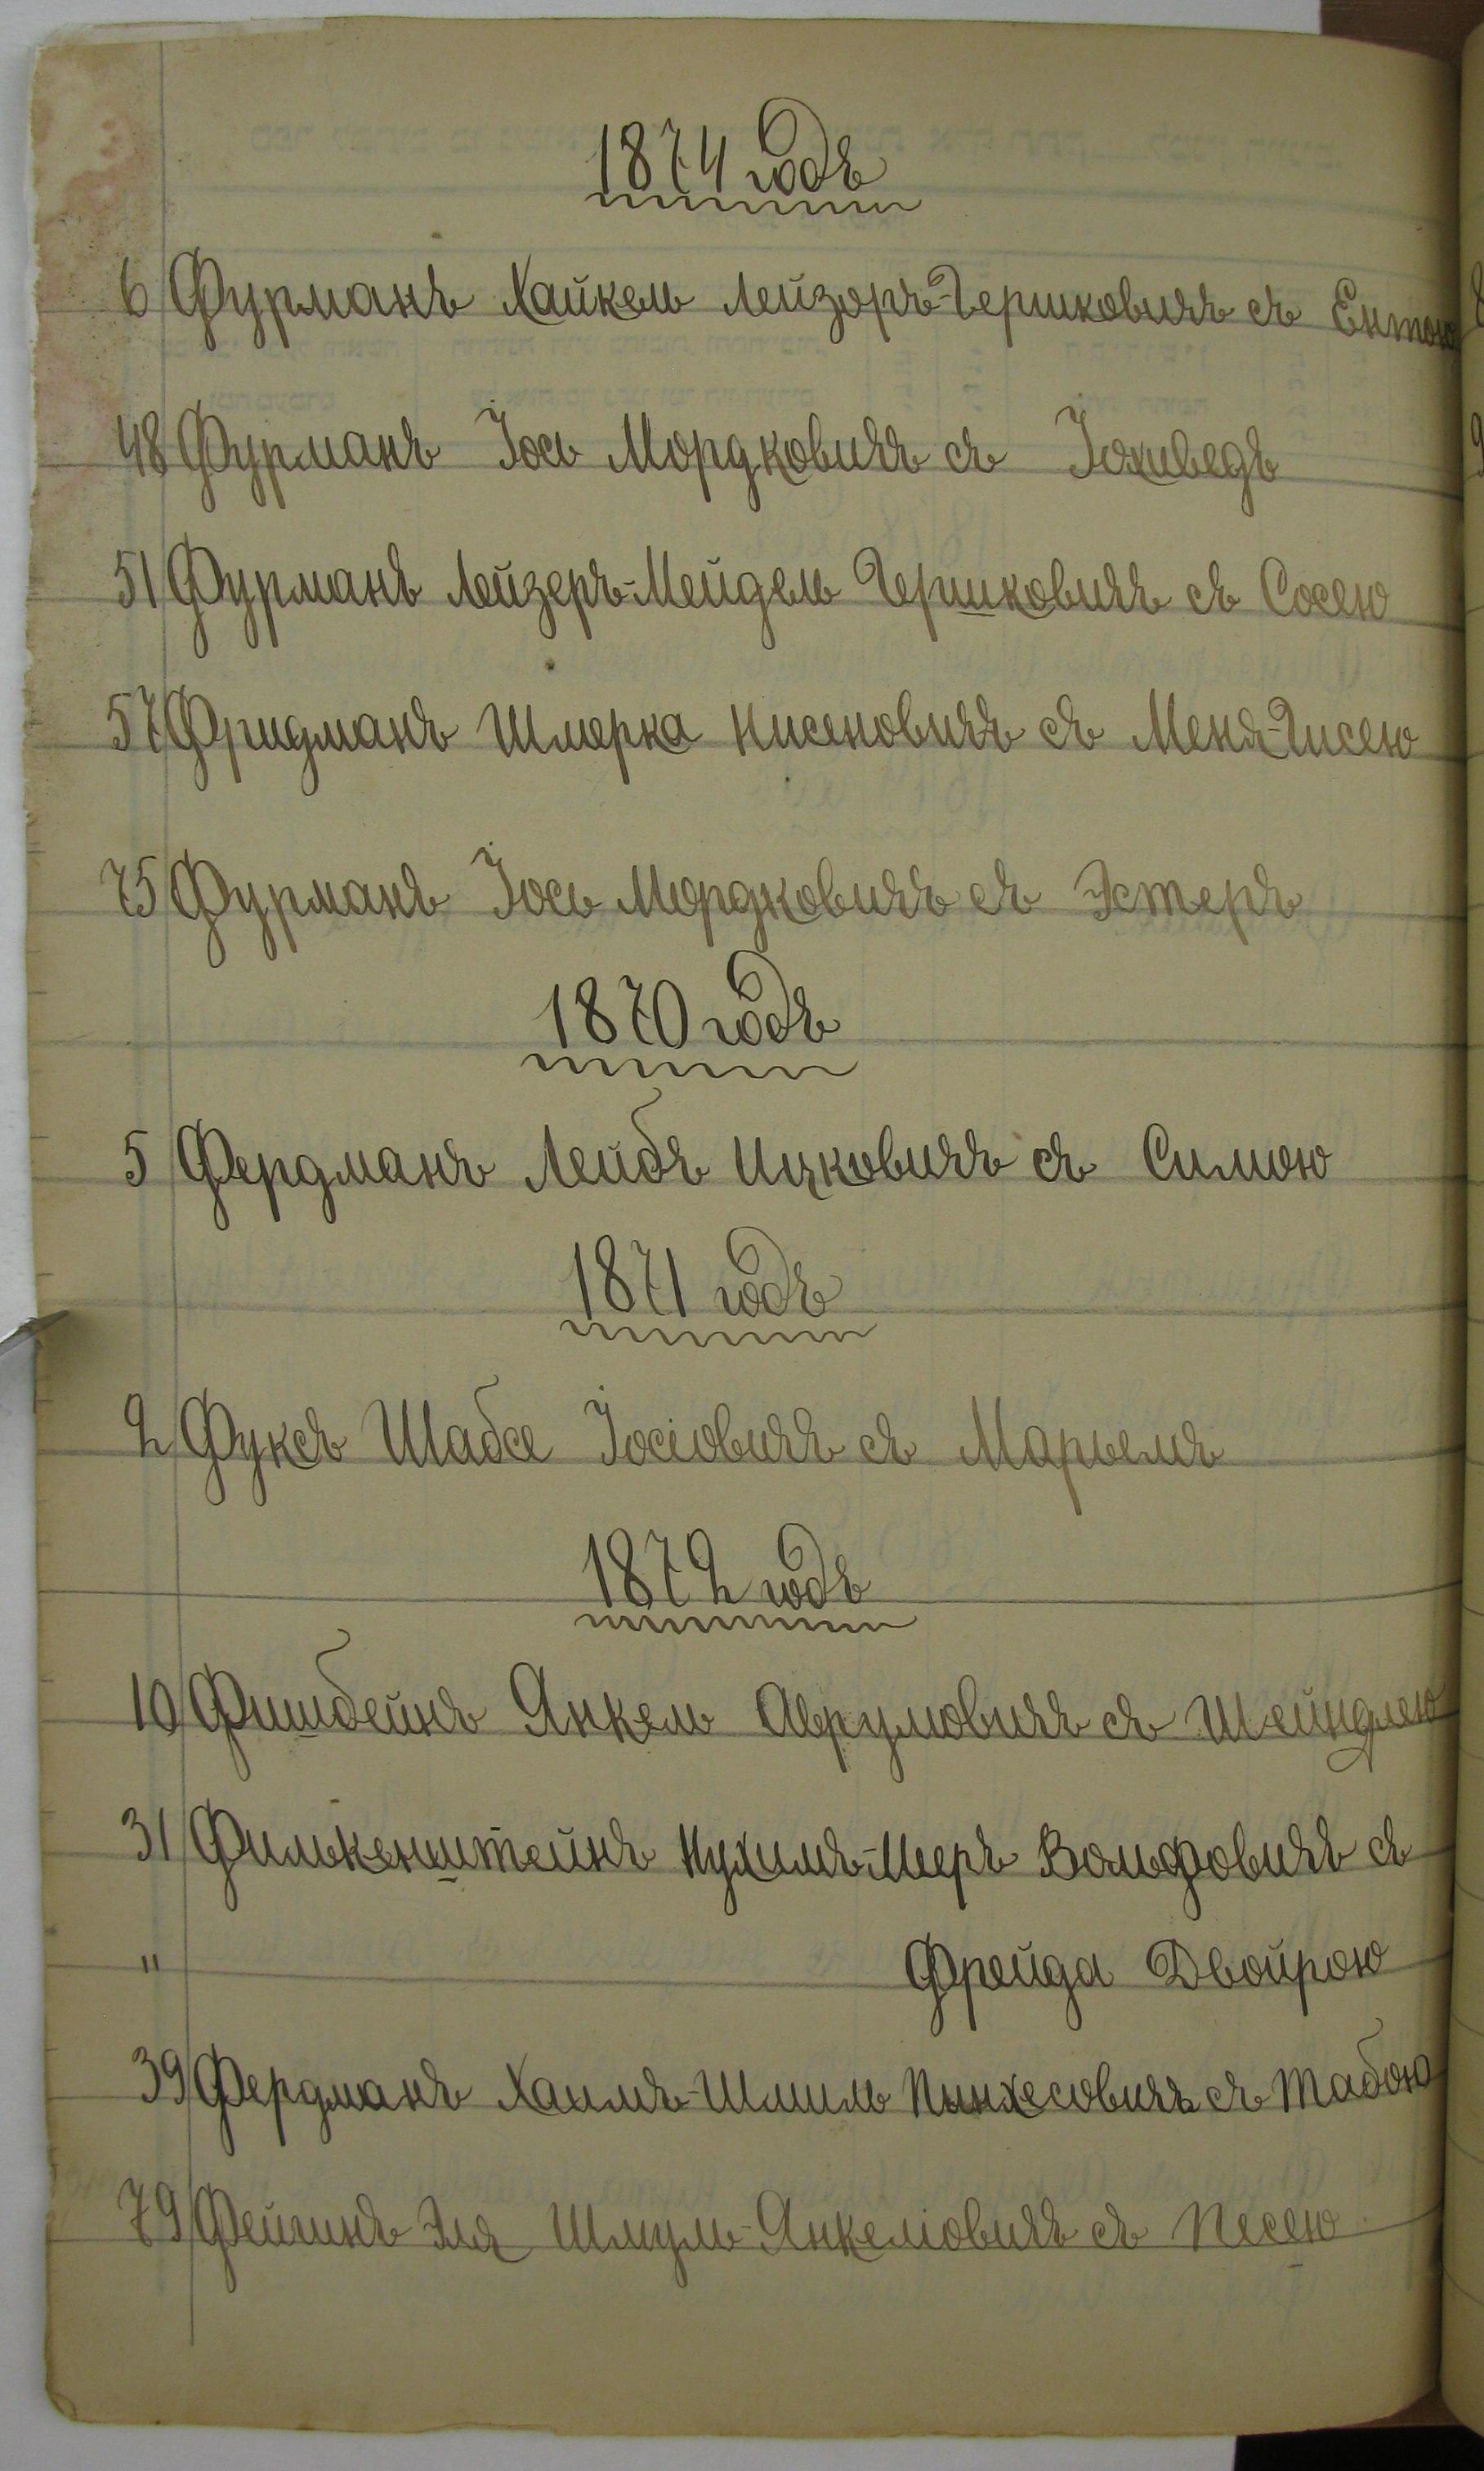 1874 годъ
6 Фурманъ Хайкель Лейзоръ-Гершковичъ съ Ентою
48 Фурманъ Іось Мордковичъ съ Іохведъ
51 Фурманъ Лейзеръ-Мейдель Гершковичъ съ Сосею
57 Фридманъ Шмерка Нисеновичъ съ Меня-Гисею
75 Фурманъ Іось Мордковичъ съ Эстеръ
1870 годъ
5 Фердманъ Лейбъ Ицковичъ съ Симою
1871 годъ
2 Фуксъ Шабсе Іосіовичъ съ Марьемъ
1872 годъ
10 Фишбейнъ Янкель Аврумовичъ съ Шейндлею
31 Филькенштейнъ Нухимъ-Меръ Вольфовичъ съ
" Фрейда Двойрою
39 Фердманъ Хаимъ-Шмиль Пинхесовичъ съ Табою
79 Фейгинъ Эля Шмуль-Янкеліовичъ съ Песею